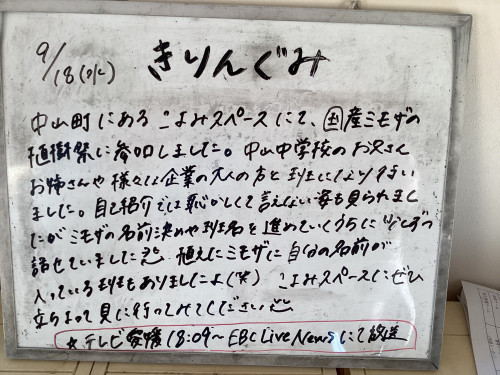 9/18(水) きりんぐみ
中山町にある こよみスペースにて、国産ミモザの
植樹祭に参加しました。中山中学校のお兄さん
お姉さんや様々な企業の大人の方と班になり行い
ました。自己紹介では恥かしくて言えない姿も見られまし
たがミモザの名前決めや班名を進めていくうちに少しずつ
話せていました。植えたミモザに自分の名前が
入っている班もありましたよ(*) こよみスペースにぜひ
立ちよって見に行ってみてください
☆テレビ愛媛 18:09〜 EBC Live Newsにて放送